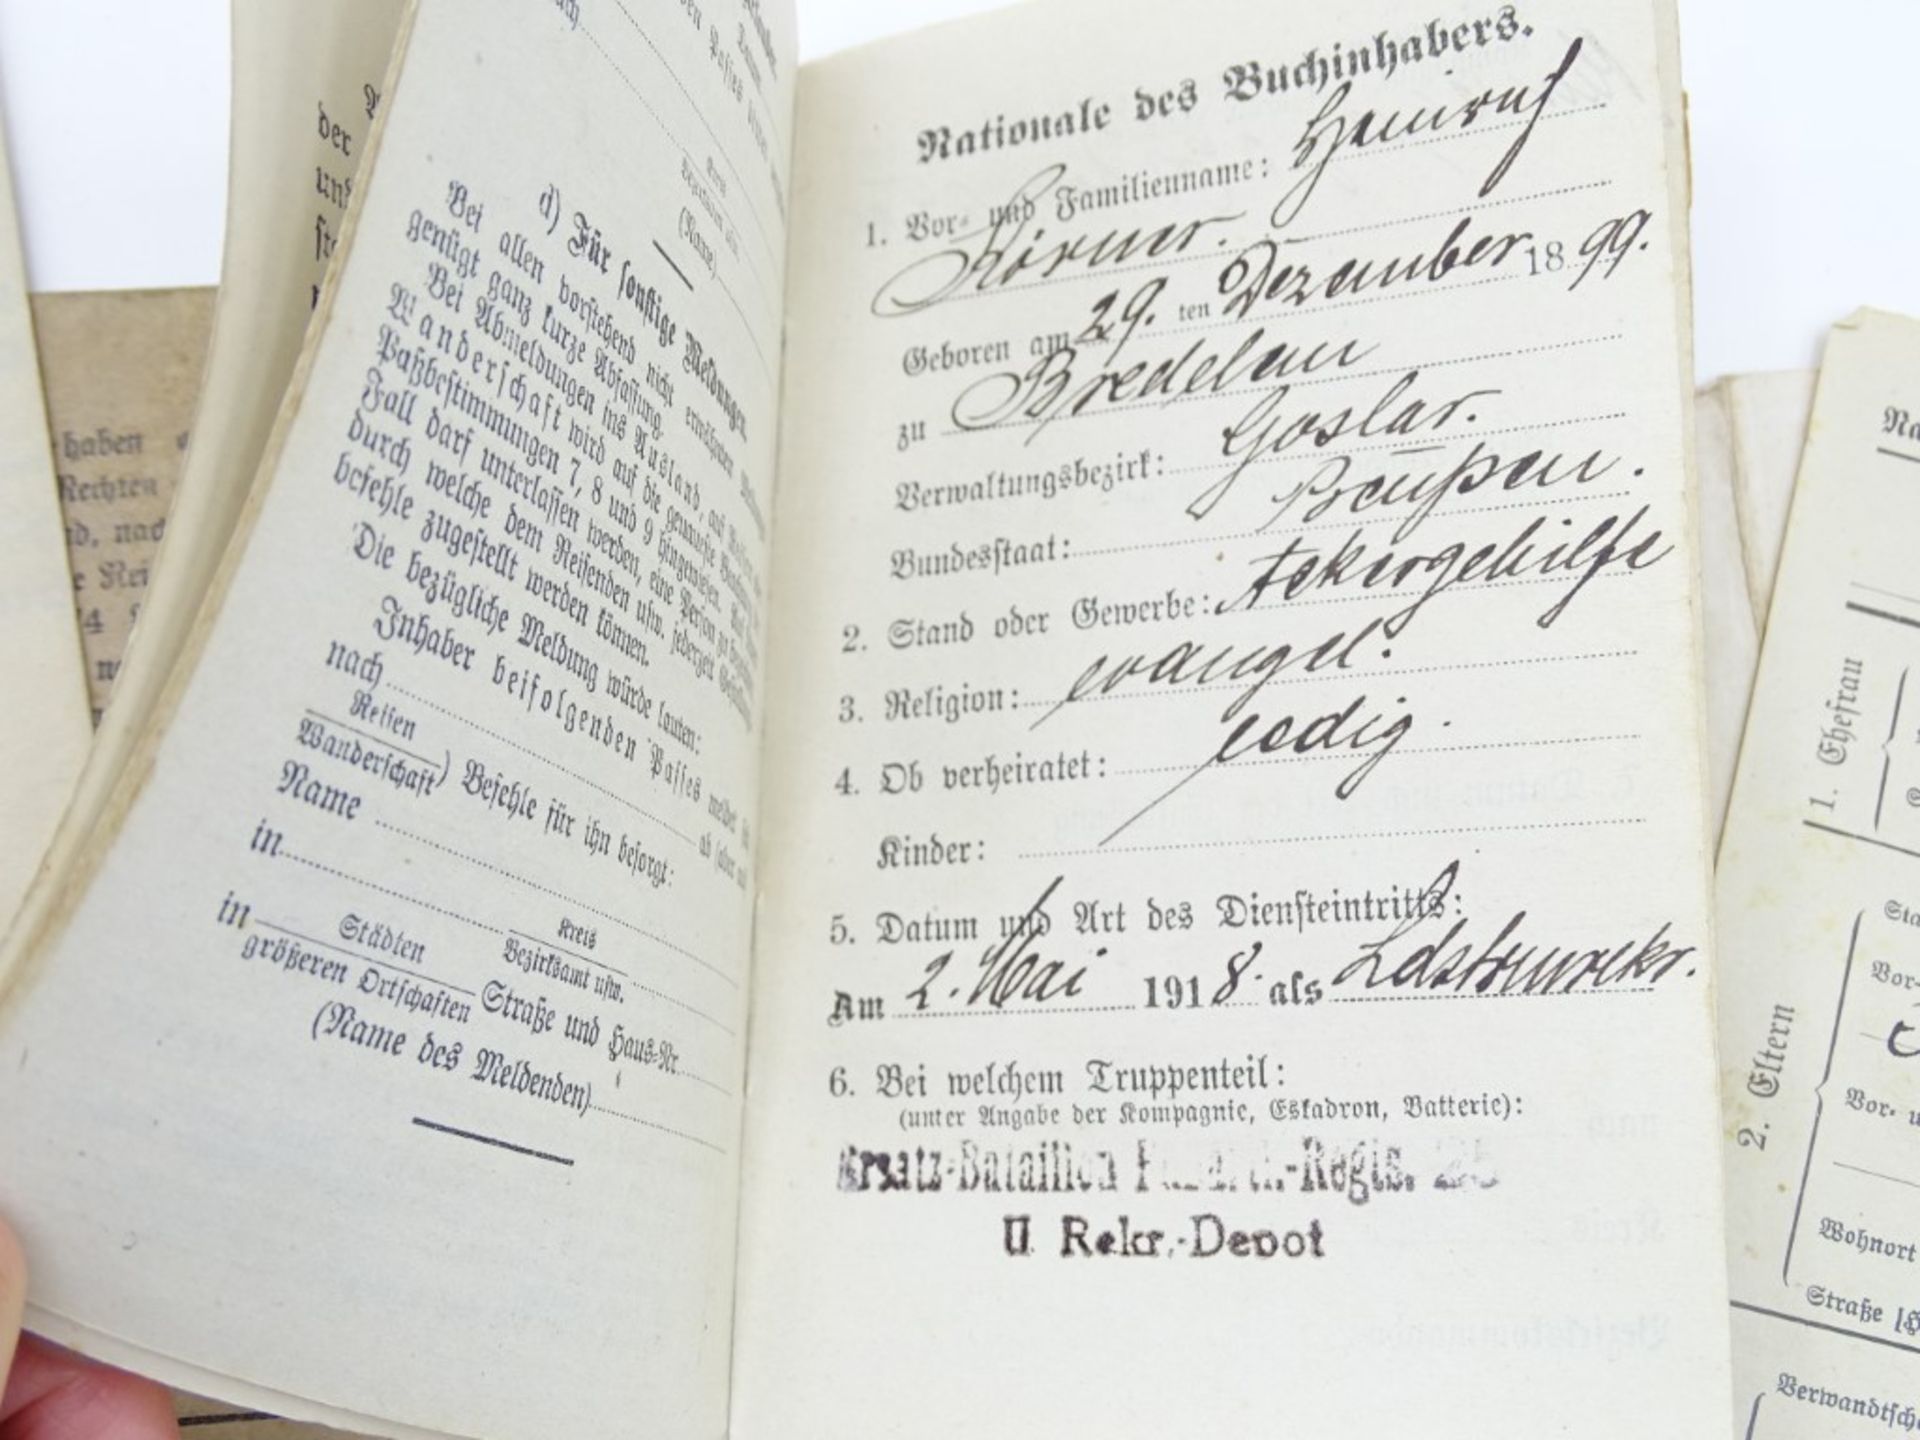 d) Für sonstige Meldungen.
Bei allen vorstehend nicht erwähnten
genügt ganz kurze Abfassung.
Bei Abmeldungen ins Ausland, auf
Wanderschaft wird auf die genaueste
Paßbestimmungen 7, 8 und 9 hingewiesen.
Fall darf unterlassen werden, eine Person zu
durch welche dem Reisenden usw. jederzeit
befehle zugestellt werden können.
Die bezügliche Meldung würde lauten:
Inhaber beifolgenden Passes meldet
nach
ab (aber
Reisen
Wanderschaft) Befehle für ihn besorgt:
Name
in
Kreis
Bezirksamt usw.
in Städten
größeren Ortschaften Straße und Haus-Nr
(Name des Meldenden)
Nationale des Buchinhabers.
1. Vor- und Familienname: Heinrich
Körner.
Geboren am 29. ten Dezember 1899.
zu Bredelau
Verwaltungsbezirk: Goslar.
Bundesstaat: Preußen.
2. Stand oder Gewerbe: Ackergehilfe
3. Religion: evangel.
4. Ob verheiratet: ledig.
Kinder:
5. Datum und Art des Diensteintritts:
Am 2. Mai 1918. als Ldstrmrekr.
6. Bei welchem Truppenteil:
(unter Angabe der Kompagnie, Eskadron, Batterie):
Ersatz-Bataillon -Regts.
II Rekr.-Depot
haben
Rechten
der
1. Ehefrau
2. Eltern
Vor-
Vor- u
Wohnort
Straße
Verwandtsch